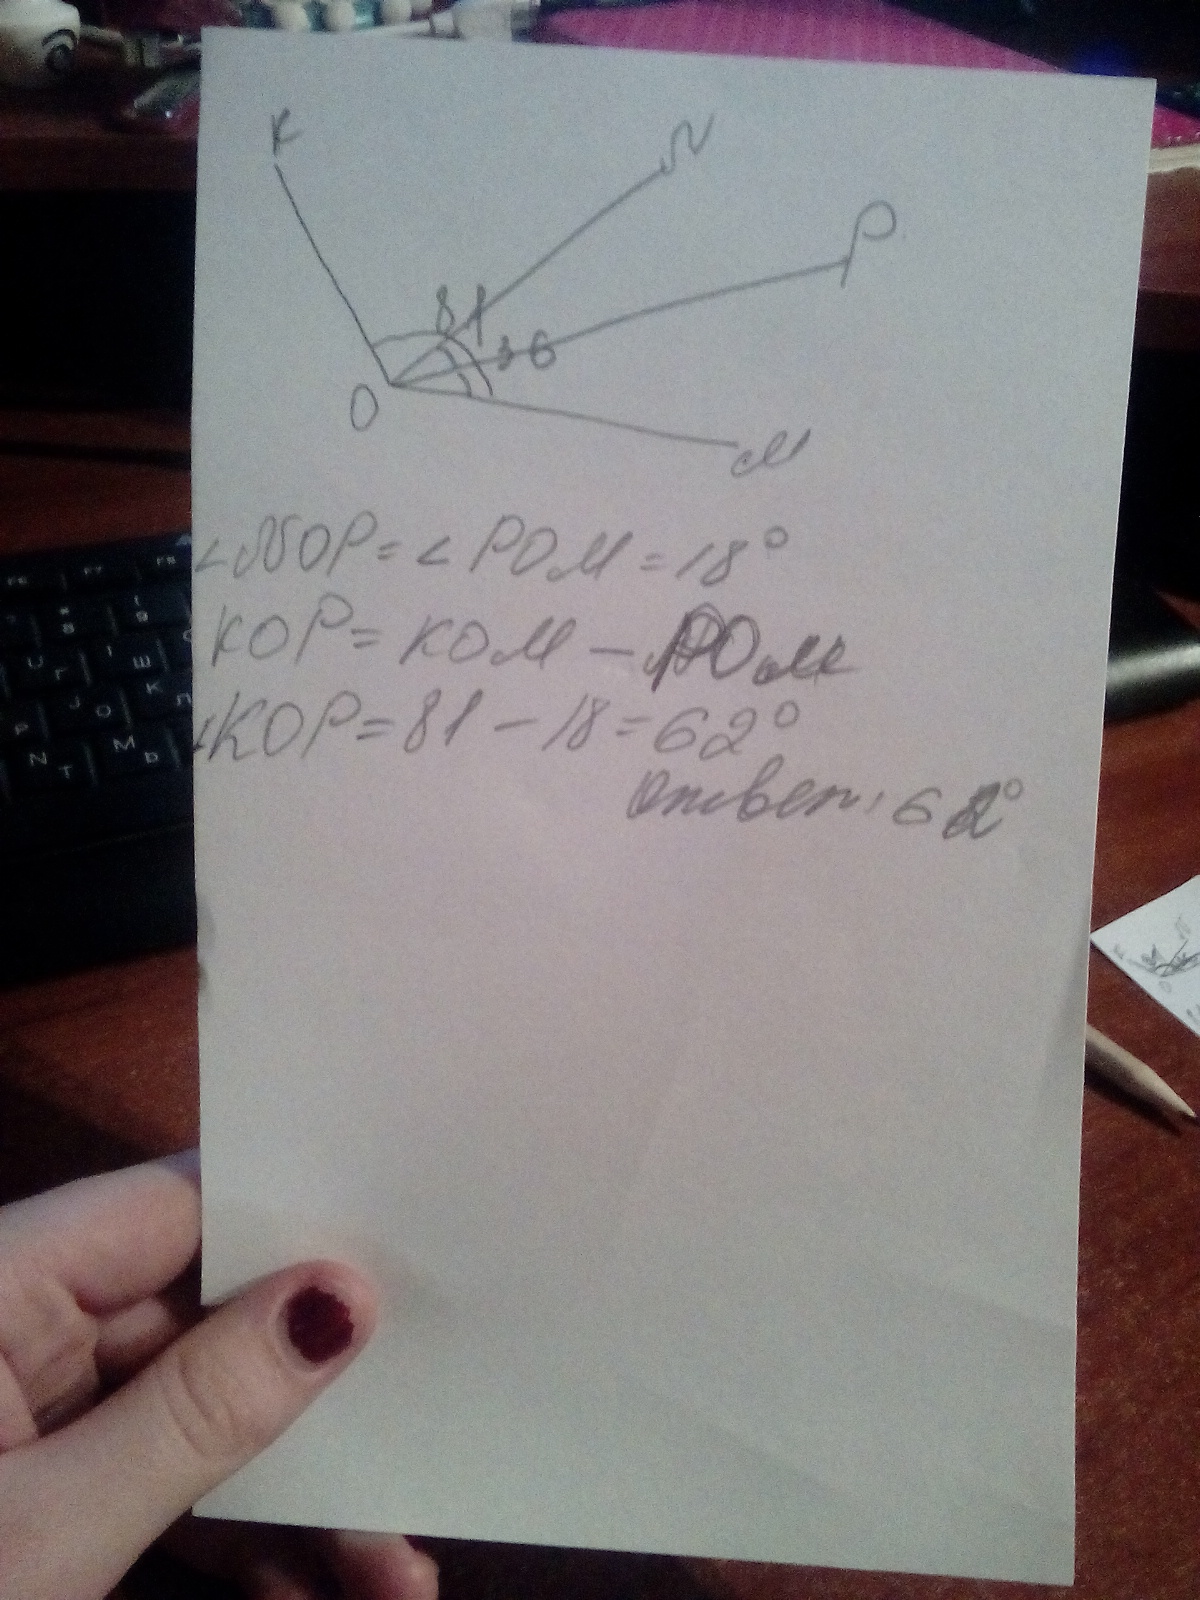 К
N
P
81
36
O
M
∠NOP = ∠POM = 18°
KOP = KOM – POM
∠KOP = 81 – 18 = 62°
Ответ: 62°